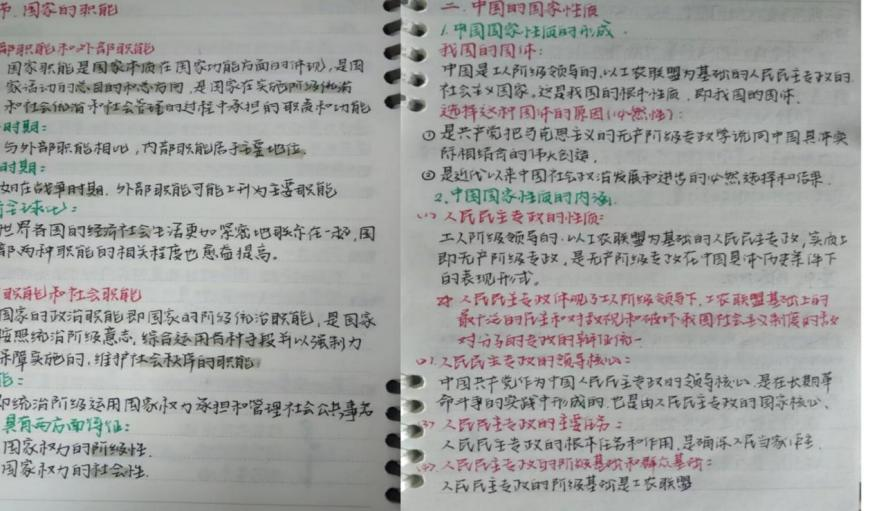 节. 国家的职能
部职能和外部职能
国家职能是国家本质在国家功能方面的体现,是国
家活动的总目的和总方向,是国家在实施阶级统治
和社会统治和社会管理的过程中承担的职责和功能
时期:
与外部职能相比,内部职能居于主要地位.
时期:
如在战争时期.外部职能可能上升为主要职能
全球化:
世界各国的经济社会生活更加紧密地联系在一起,国
部两种职能的相关程度也愈益提高。
职能和社会职能
国家的政治职能即国家的阶级统治职能,是国家
按照统治阶级意志,综合运用各种手段并以强制力
保障实施的,维护社会秩序的职能.
能:
即统治阶级运用国家权力承担和管理社会公共事务
具有两方面特征:
国家权力的阶级性.
国家权力的社会性.
二.中国的国家性质
1.中国国家性质的形成.
我国的国体:
中国是工人阶级领导的,以工农联盟为基础的人民民主专政的
社会主义国家,这是我国的根本性质,即我国的国体.
选择这种国体的原因(必然性):
① 是共产党把马克思主义的无产阶级专政学说同中国具体实
际相结合的伟大创造.
② 是近代以来中国社会政治发展和进步的必然选择和结果.
2.中国国家性质的内涵.
(1) 人民民主专政的性质:
工人阶级领导的.以工农联盟为基础的人民民主专政,实质上
即无产阶级专政,是无产阶级专政在中国具体历史条件下
的表现形式。
人民民主专政体现了工人阶级领导下,工农联盟基础上的
最广泛的民主和对敌视和破坏我国社会主义制度的敌
对分子的专政的辩证统一
(2).人民民主专政的领导核心:
中国共产党作为中国人民民主专政的领导核心.是在长期革
命斗争的实践中形成的.也是由人民民主专政的国家核心.
(3) 人民民主专政的主要任务:
人民民主专政的根本任务和作用.是确保人民当家作主.
(4).人民民主专政的阶级基础和群众基础:
人民民主专政的阶级基础是工农联盟